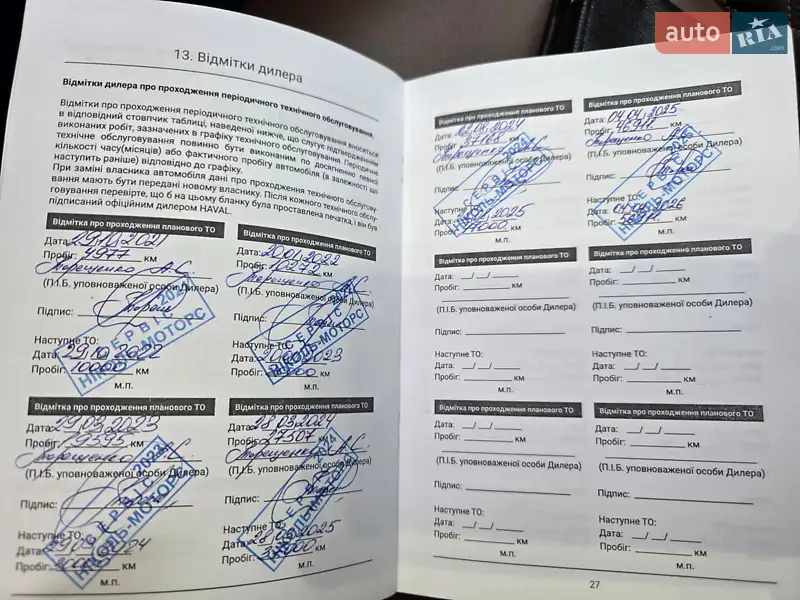 auto RIA .com
13. Відмітки дилера
Відмітки дилера про проходження періодичного технічного обслуговування.
Відмітки про проходження періодичного технічного обслуговування вносяться
в відповідний стовпчик таблиці, наведеної нижче, що слугує підтвердженням
виконаних робіт, зазначених в графіку технічного обслуговування. Періодичне
технічне обслуговування повинно бути виконаним по досягненню певної
кількості часу(місяців) або фактичного пробігу автомобіля (в залежності що
наступить раніше) відповідно до графіку.
При заміні власника автомобіля дані про проходження технічного обслугову-
вання мають бути передані новому власнику. Після кожного технічного обслу-
говування перевірте, що б на цьому бланку була проставлена печатка, і він був
підписаний офіційним дилером HAVAL.
Відмітка про проходження планового ТО
Дата: 29.10.2021
Пробіг: 4977 км
Терещенко А.С.
(П.І.Б. уповноваженої особи Дилера)
Підпис:
СЕРВІС 2021
НІКОЛЬ-МОТОРС
Наступне ТО:
Дата: 29.10.2022
Пробіг: 10000 км
м.п.
Відмітка про проходження планового ТО
Дата: 20.01.2022
Пробіг: 10272 км
Терещенко А.С.
(П.І.Б. уповноваженої особи Дилера)
Підпис:
СЕРВІС
НІКОЛЬ-МОТОРС
Наступне ТО:
Дата: 2023
Пробіг: км
м.п.
Відмітка про проходження планового ТО
Дата: 29.03.2023
Пробіг: 19595 км
Терещенко А.С.
(П.І.Б. уповноваженої особи Дилера)
Підпис:
СЕРВІС
НІКОЛЬ-МОТОРС
Наступне ТО:
Дата: 2024
Пробіг: км
м.п.
Відмітка про проходження планового ТО
Дата: 28.03.2024
Пробіг: 27507 км
Терещенко А.С.
(П.І.Б. уповноваженої особи Дилера)
Підпис:
СЕРВІС
НІКОЛЬ-МОТОРС
Наступне ТО:
Дата: 28.03.2025
Пробіг: 37000 км
м.п.
Відмітка про проходження планового ТО
Дата: 2024
Пробіг: км
Терещенко А.С.
(П.І.Б. уповноваженої особи Дилера)
Підпис:
СЕРВІС 2024
НІКОЛЬ-МОТОРС
Наступне ТО:
Дата: 2025
Пробіг: 47000 км
м.п.
Відмітка про проходження планового ТО
Дата: 04.04.2025
Пробіг: км
Терещенко А.С.
(П.І.Б. уповноваженої особи Дилера)
Підпис:
СЕРВІС 2025
НІКОЛЬ-МОТОРС
Наступне ТО:
Дата: 04.04.2026
Пробіг: км
м.п.
Відмітка про проходження планового ТО
Дата: __/__/____
Пробіг: ____ км
(П.І.Б. уповноваженої особи Дилера)
Підпис:
Наступне ТО:
Дата: __/__/____
Пробіг: ____ км
м.п.
Відмітка про проходження планового ТО
Дата: __/__/____
Пробіг: ____ км
(П.І.Б. уповноваженої особи Дилера)
Підпис:
Наступне ТО:
Дата: __/__/____
Пробіг: ____ км
м.п.
Відмітка про проходження планового ТО
Дата: __/__/____
Пробіг: ____ км
(П.І.Б. уповноваженої особи Дилера)
Підпис:
Наступне ТО:
Дата: __/__/____
Пробіг: ____ км
м.п.
Відмітка про проходження планового ТО
Дата: __/__/____
Пробіг: ____ км
(П.І.Б. уповноваженої особи Дилера)
Підпис:
Наступне ТО:
Дата: __/__/____
Пробіг: ____ км
м.п.
27